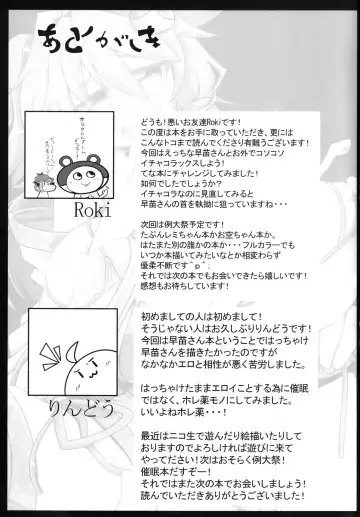 あとがき
どうも！悪いお友達Rokiです！
この度は本をお手に取っていただき、更には
こんなトコまで読んでくださり有難うございます！
今回はえっちな早苗さんとお外でコソコソ
イチャコラックスしよう！
てな本にチャレンジしてみました！
如何でしたでしょうか？
イチャコラなのに見直してみると
早苗さんの首を執拗に狙っていますね・・・
次回は例大祭予定です！
たぶんレミちゃん本かお空ちゃん本か。
はたまた別の誰かの本か・・・フルカラーでも
いつか本描いてみたいなとか相変わらず
優柔不断です＾ρ＾；
それでは次の本でもお会いできたら嬉しいです！
感想もお待ちしています！
Roki
初めましての人は初めまして！
そうじゃない人はお久しぶりりんどうです！
今回は早苗さん本ということではっちゃけ
早苗さんを描きたかったのですが
なかなかエロと相性が悪く苦労しました。
はっちゃけたままエロイことする為に催眠
ではなく、ホレ薬モノにしてみました。
いいよねホレ薬・・・！
最近はニコ生で遊んだり絵描いたりして
おりますのでよろしければ遊びに来て
やってださい！次はおそらく例大祭！
催眠本だすぞー！
それではまた次の本でお会いしましょう！
読んでいただきありがとうございました！
りんどう